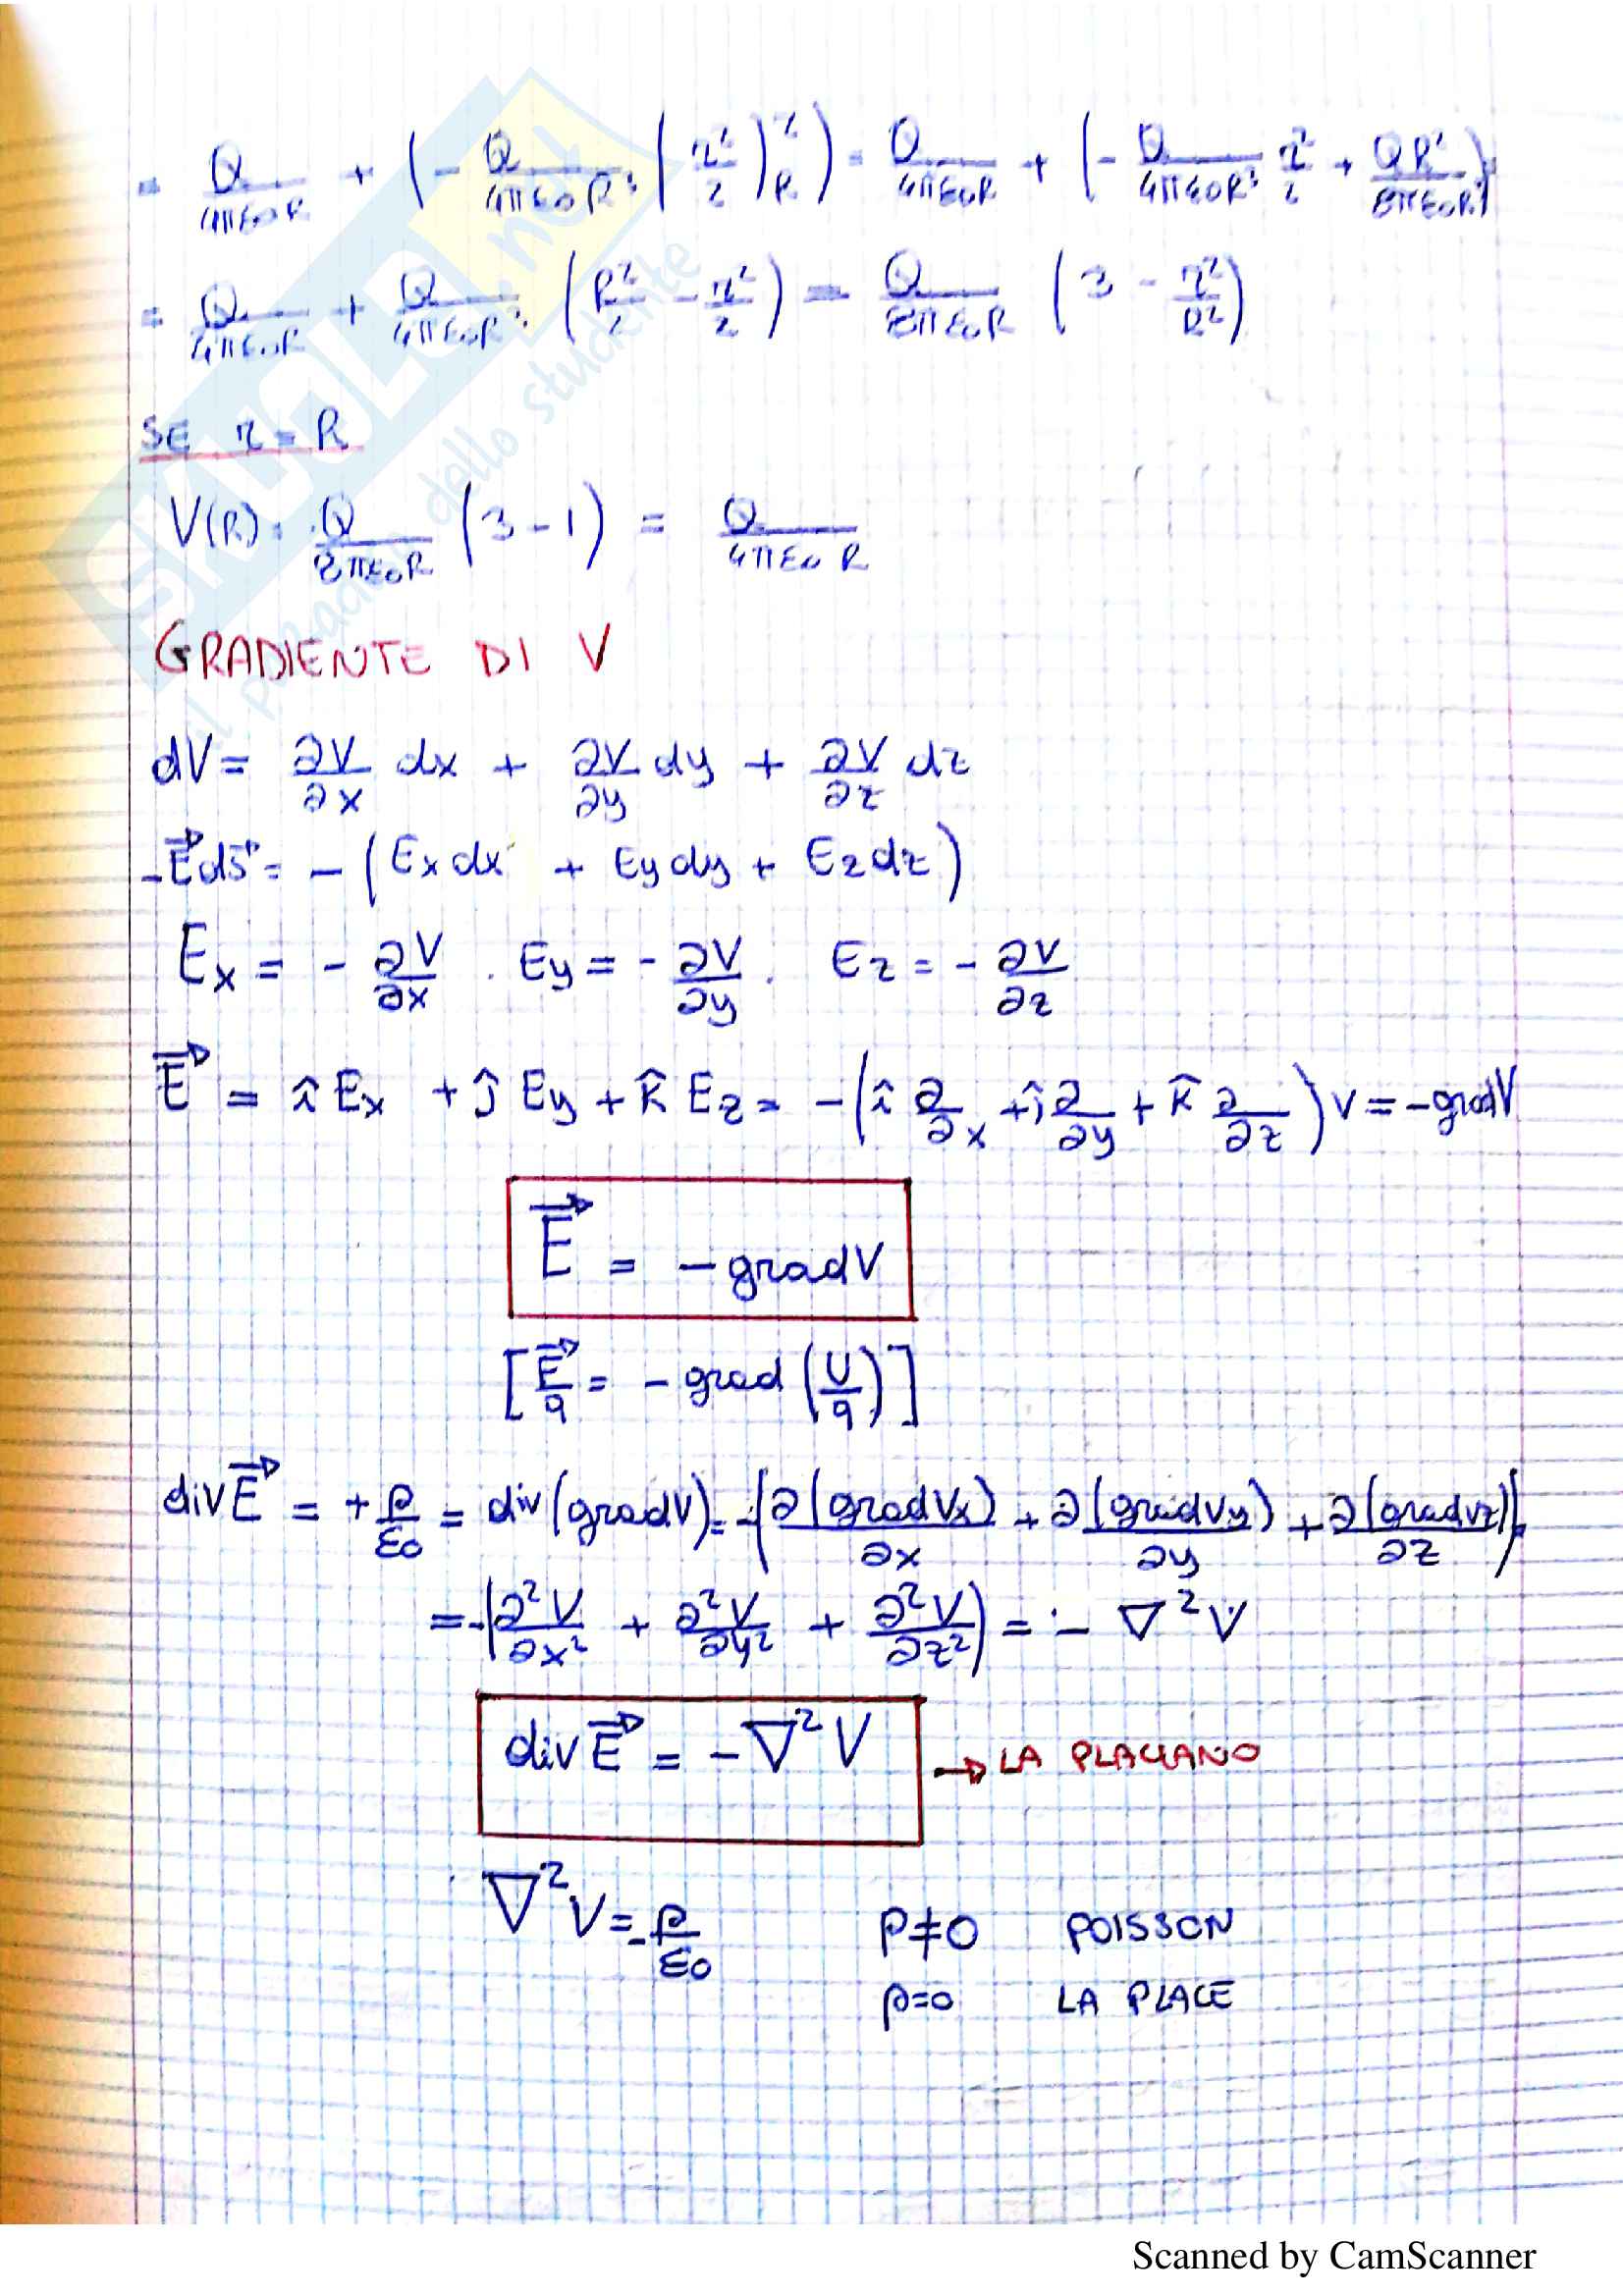 = Q/(4πε0R) + (-Q/(4πε0R³) (r²/2)^r_R) = Q/(4πε0R) + (-Q/(4πε0R³) r²/2 + QR²/(8πε0R³))
= Q/(4πε0R) + Q/(4πε0R³) (R²/2 - r²/2) = Q/(8πε0R) (3 - r²/R²)
SE r = R
V(R) = Q/(8πε0R) (3 - 1) = Q/(4πε0R)
GRADIENTE DI V
dV = ∂V/∂x dx + ∂V/∂y dy + ∂V/∂z dz
-E⃗ds⃗ = -(Exdx + Eydy + Ezdz)
Ex = -∂V/∂x . Ey = -∂V/∂y . Ez = -∂V/∂z
E⃗ = îEx + ĵEy + k̂Ez = -(î ∂/∂x + ĵ ∂/∂y + k̂ ∂/∂z)V = -gradV
E⃗ = -gradV
[E⃗/q = -grad(U/q)]
divE⃗ = +ρ/ε0 = div(gradV) = -(∂(gradVx)/∂x + ∂(gradVy)/∂y + ∂(gradVz)/∂z) =
= -(∂²V/∂x² + ∂²V/∂y² + ∂²V/∂z²) = -∇²V
divE⃗ = -∇²V → LA PLACIANO
∇²V = -ρ/ε0 ρ≠0 POISSON
ρ=0 LA PLACE
SKUOLA.net
il paradiso dello studente
Scanned by CamScanner